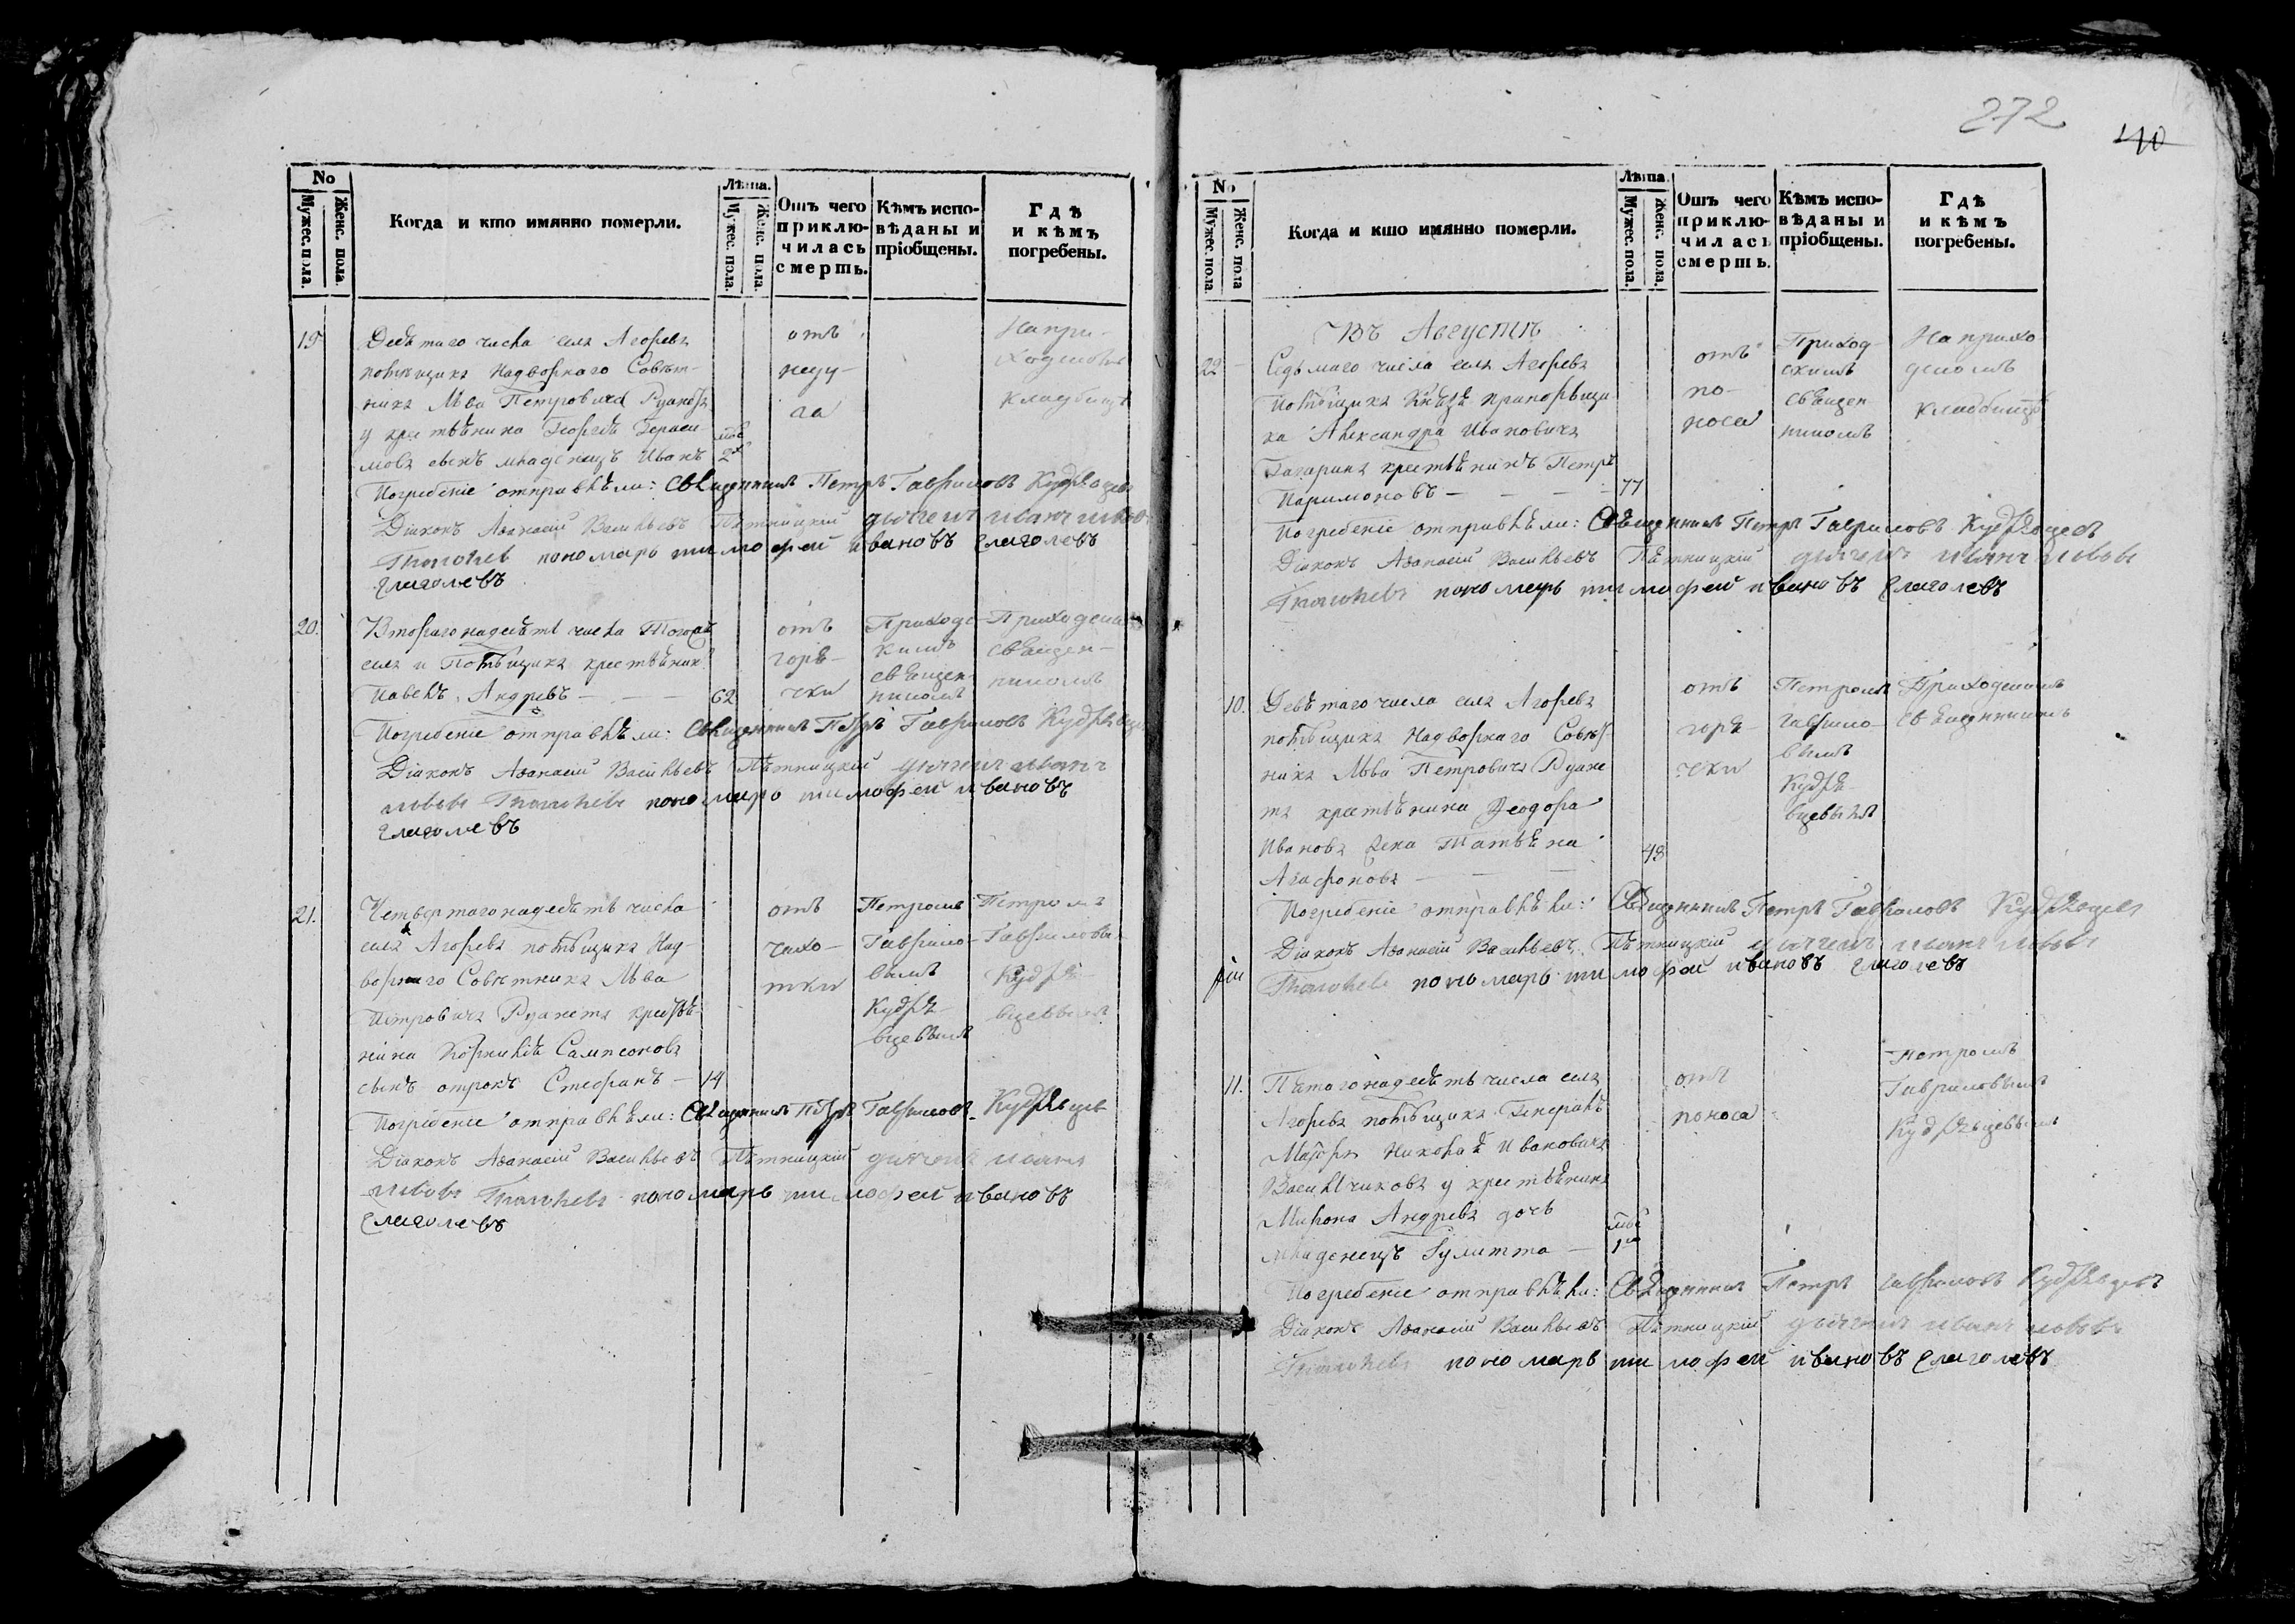 272
40
No
Мужес. пола.
Женс. пола
Когда и кто имянно померли.
Лѣта.
Мужес. пола.
Женс. пола.
Отъ чего приклю-чилась смерть.
Кѣмъ испо-вѣданы и пріобщены.
Гдѣ и кѣмъ погребены.
19
числа села Агорева
помѣщика Надворнаго Совѣт-
ника Льва Петровича
у крестьянина Гераси-
мова сынъ младенецъ Иванъ
2
отъ
неду-
га
На при-
ходскомъ
кладбищѣ
Погребеніе отправляли: Священникъ Петръ Гавриловъ Кудрявцевъ
Діаконъ Аѳанасій Васильевъ Пятницкій дьячекъ Иванъ
пономарь тимофей ивановъ глаголевъ
глаголевъ
20.
Втораго надесять числа тогожъ
села и помѣщика крестьянинъ
Павелъ Андревъ — — — 62
отъ
горя-
чки
Приходс-
кимъ
священ-
никомъ
Приходскимъ
священ-
никомъ
Погребеніе отправляли: Священникъ Петръ Гавриловъ Кудрявцевъ
Діаконъ Аѳанасій Васильевъ Пятницкій дьячекъ Иванъ
пономарь тимофей ивановъ
глаголевъ
21.
Четвертагонадесять числа
села Агорева помѣщика Над-
ворнаго Совѣтника Льва
Петровича крестья-
нина Корнилія Сампсонова
сынъ отрокъ Стефанъ — 14
отъ
чахо-
тки
Петромъ
Гаврило-
вымъ
Кудря-
вцевымъ
Петромъ
Гавриловымъ
Кудря-
вцевымъ
Погребеніе отправляли: Священникъ Петръ Гавриловъ Кудрявцевъ
Діаконъ Аѳанасій Васильевъ Пятницкій дьячекъ Иванъ
пономарь тимофей ивановъ
глаголевъ
No
Мужес. пола.
Женс. пола
Когда и кто имянно померли.
Лѣта.
Мужес. пола.
Женс. пола.
Отъ чего приклю-чилась смерть.
Кѣмъ испо-вѣданы и пріобщены.
Гдѣ и кѣмъ погребены.
Въ Августѣ
22
Седьмаго числа села Агорева
помѣщика Князя прапорщи-
ка Александра Ивановича
Гагарина крестьянинъ Петръ
Паримоновъ — — — 77
отъ
по-
носа
Приход-
скимъ
священ-
никомъ
На прихо
дскомъ
кладбищѣ
Погребеніе отправляли: Священникъ Петръ Гавриловъ Кудрявцевъ
Діаконъ Аѳанасій Васильевъ Пятницкій дьячекъ Иванъ
пономарь тимофей ивановъ глаголевъ
10.
Девятаго числа села Агорева
помѣщика Надворнаго Совѣт-
ника Льва Петровича
крестьянина Ѳеодора
Иванова жена Татьяна
Агафонова — — 48
отъ
горя-
чки
Петромъ
Гаврило-
вымъ
Кудря-
вцевымъ
Приходскимъ
священникомъ
Погребеніе отправляли: Священникъ Петръ Гавриловъ Кудрявцевъ
Діаконъ Аѳанасій Васильевъ Пятницкій дьячекъ Иванъ
пономарь тимофей ивановъ глаголевъ
11.
Пятагонадесять числа села
Агорева помѣщика Генералъ
Маіора Николая Ивановича
Васильчикова у крестьянина
Мирона Андрева дочь
младенецъ Іулитта — 1
отъ
поноса
Петромъ
Гавриловымъ
Кудрявцевымъ
Погребеніе отправляли: Священникъ Петръ Гавриловъ Кудрявцевъ
Діаконъ Аѳанасій Васильевъ Пятницкій дьячекъ Иванъ
пономарь тимофей ивановъ глаголевъ